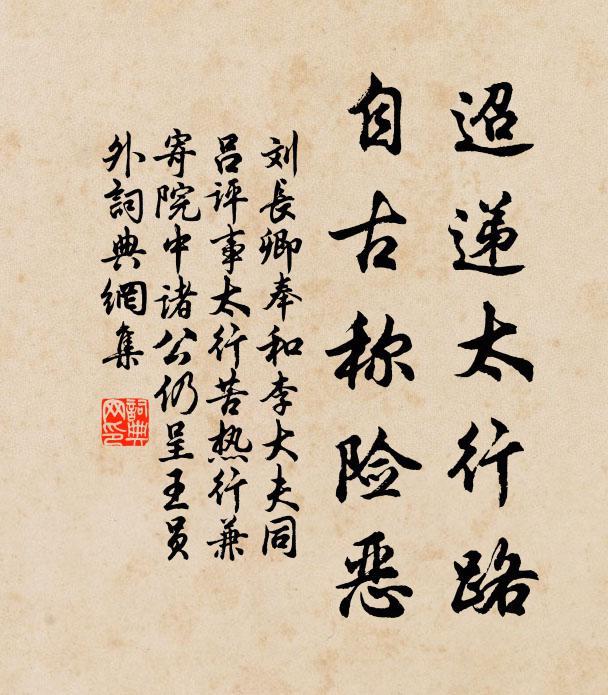 迢递太行路
自古称险恶
刘长卿奉和李大夫同
吕评事太行苦热行兼
寄院中诸公仍呈王员
外詞典網集
詞典
网印